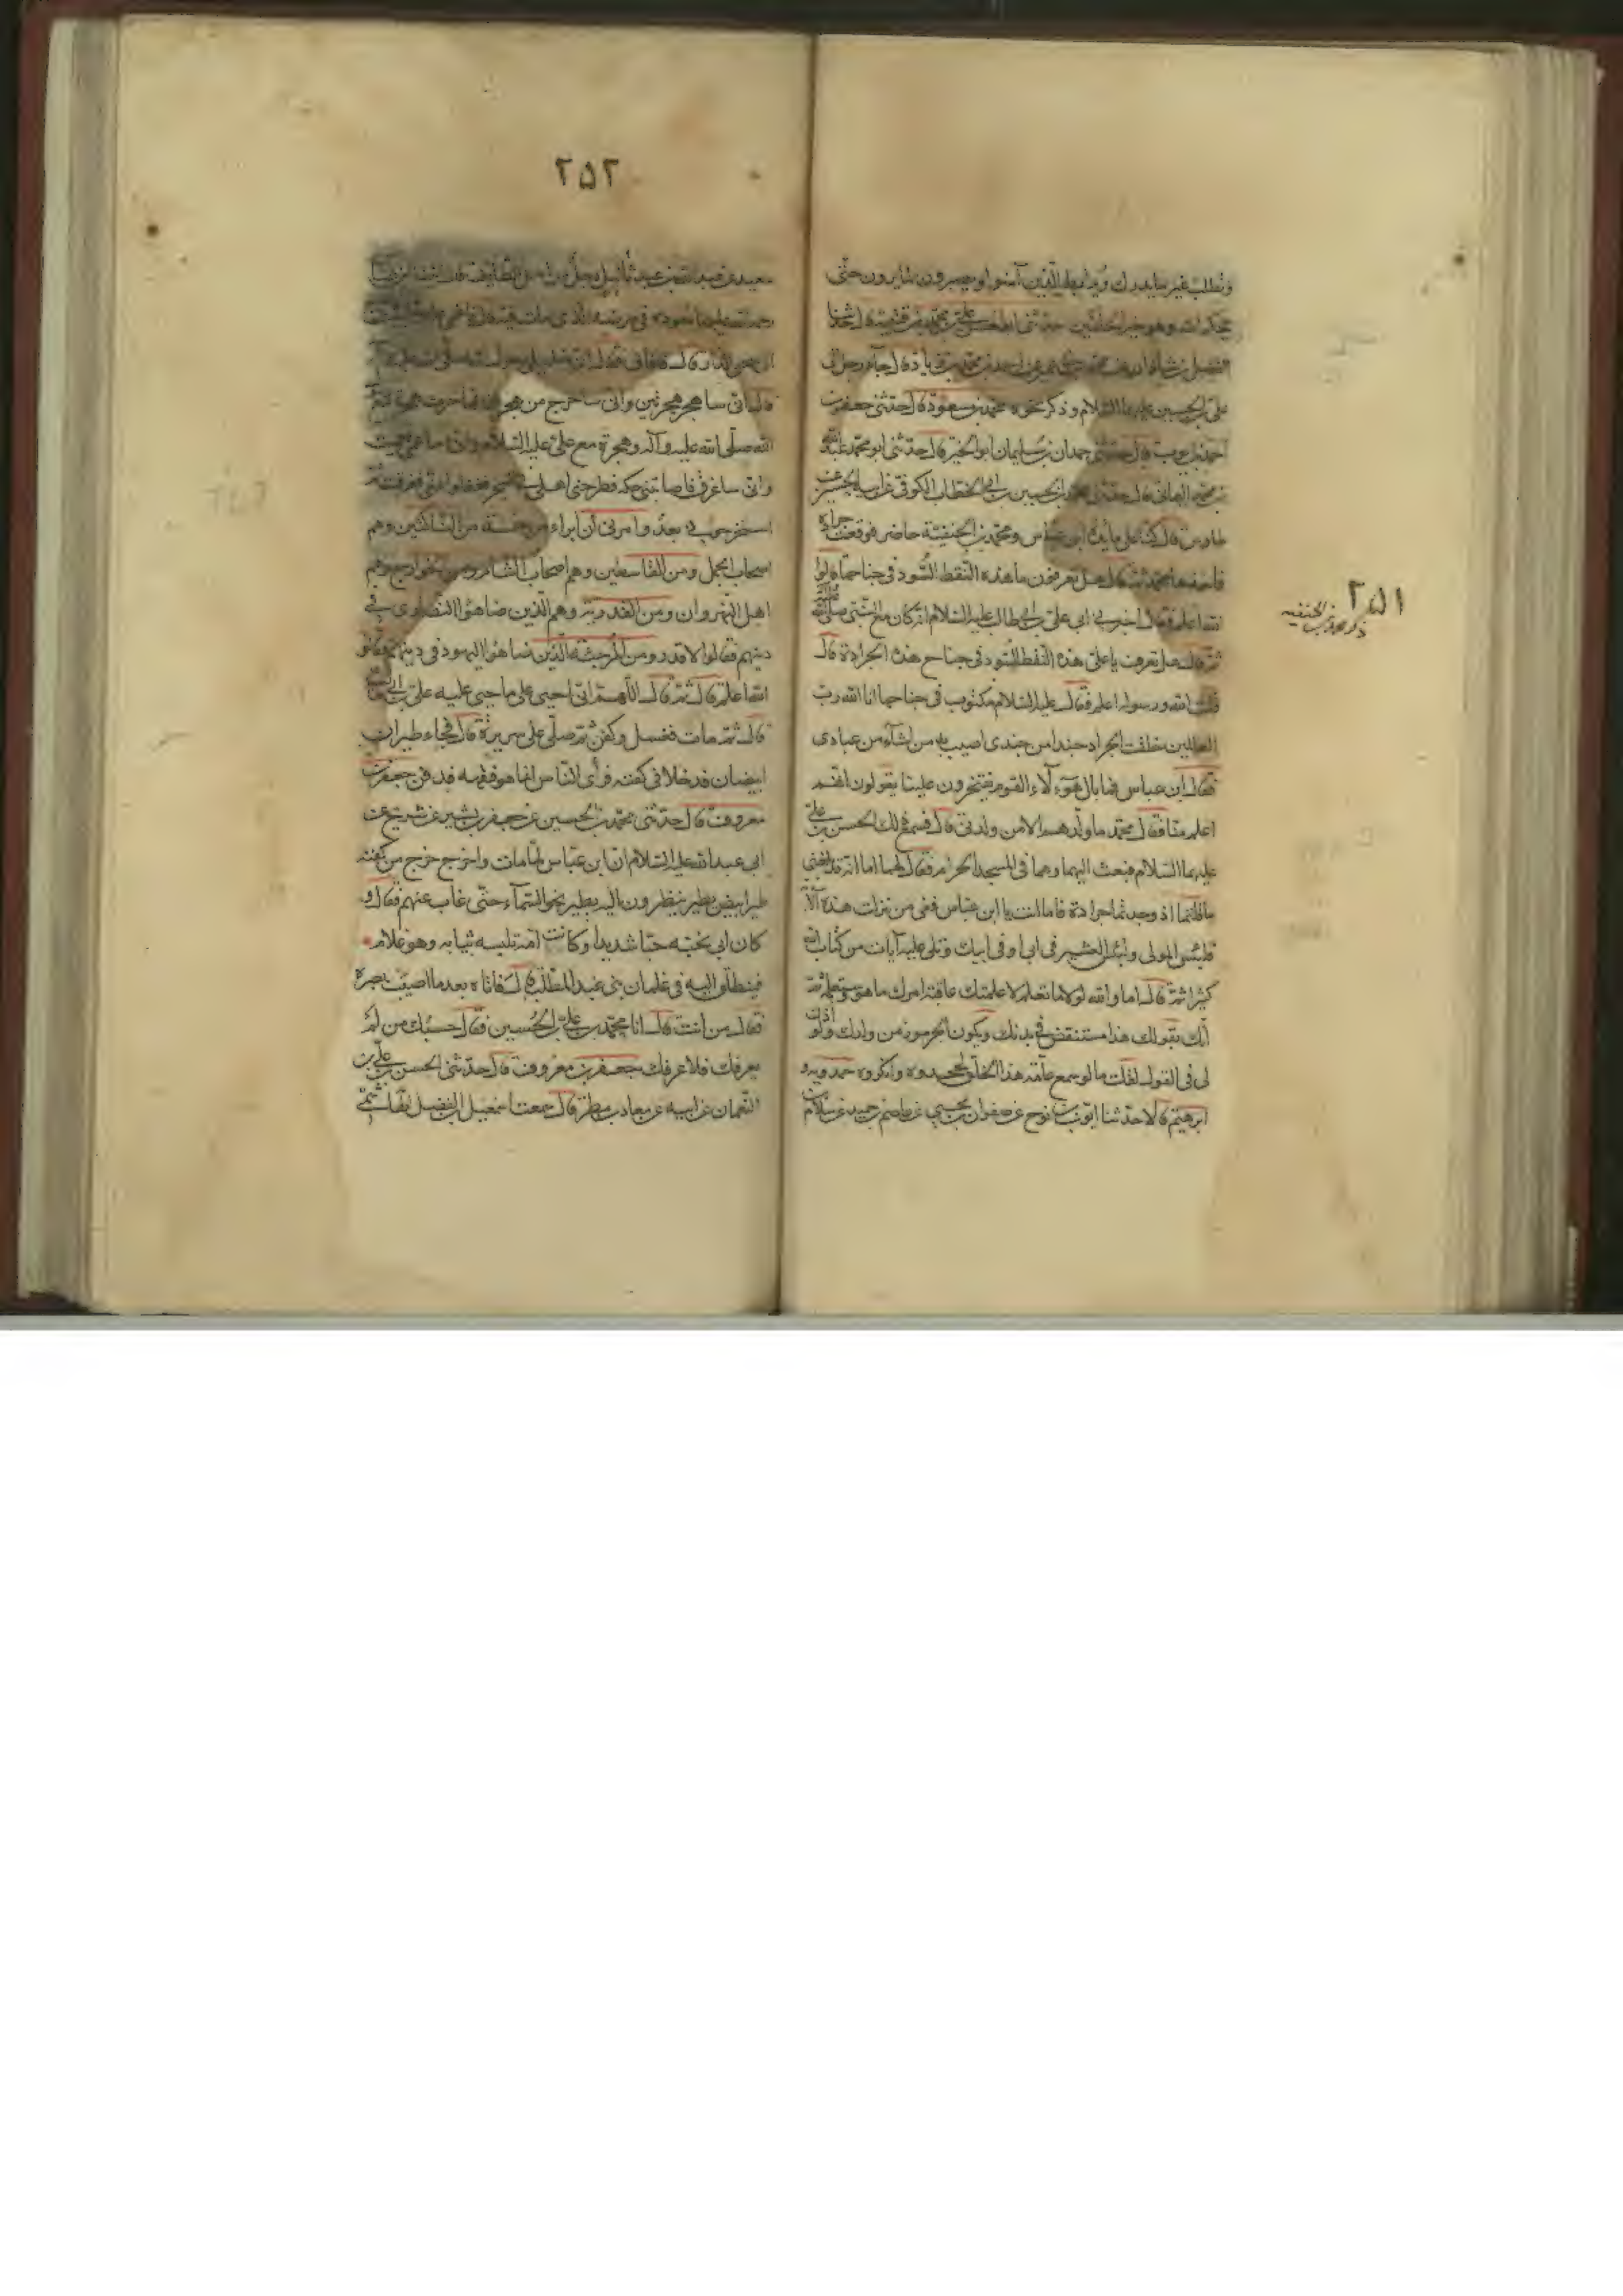 وتطلب غير ما يدرك وليعلم الذين آمنوا ويصبرون ويثابرون حتى
يحكم الله وهو خير الحاكمين حدثني ابو الحسن علي بن محمد بن قتيبة قال حدثنا
الفضل بن شاذان عن محمد بن ابي عمير عن احمد بن محمد بن زياد قال جاء رجل الى
علي بن الحسين عليهما السلام وذكر نحوه محمد بن مسعود قال حدثني جعفر بن
احمد بن ايوب قال حدثني حمدان بن سليمان ابو الخير قال حدثني ابو محمد عبد الله
بن محمد اليماني قال حدثني محمد بن الحسين بن ابي الخطاب الكوفي عن ابيه الحسين عن
طاوس قال كنا على مائدة ابن عباس ومحمد بن الحنفية حاضر فوقعت جرادة
فاخذها محمد ثم قال هل تعرفون ما هذه النقط السود في جناحها قالوا
الله اعلم فقال اخبرني ابي علي بن ابي طالب عليه السلام انه كان مع النبي صلى الله عليه وآله
ثم قال هل تعرف يا علي هذه النقط السود في جناح هذه الجرادة قال
قلت الله ورسوله اعلم فقال عليه السلام مكتوب في جناحها انا الله رب
العالمين خلقت الجراد جندا من جندي اصيب به من اشآء من عبادي
فقال ابن عباس فما بال هؤلآء القوم يفتخرون علينا يقولون انهم
اعلم منا فقال محمد ما ولدهم الا من ولدني قال فسمع ذلك الحسن بن علي
عليهما السلام فبعث اليهما وهما في المسجد الحرام فقال لهما اما انه قد بلغني
ما قلتما اذ وجدتما جرادة فاما انت يا ابن عباس ففي من نزلت هذه الآية
فلبئس المولى ولبئس العشير في ابي او في ابيك وتلى عليه آيات من كتاب الله
كثيرا ثم قال اما والله لولا ما نعلم لاعلمتك عاقبة امرك ما هو وستعلمه ثم
انك بقولك هذا مستنقص في بدنك ويكون الجرموز من ولدك ولو اذن
لي في القول لقلت ما لو سمع عامة هذا الخلق لجحدوه وانكروه حمدويه و
ابرهيم قالا حدثنا ايوب بن نوح عن صفوان بن يحيى عن عاصم بن حميد عن سلام بن
٢٥١
ذكر محمد بن الحنفية
٢٥٢
سعيد عن عبد الله بن عبد ياليل رجل من اهل الطائف قال اتينا ابن عباس
رحمة الله عليهما نعوده في مرضه الذي مات فيه قال فاغمي عليه في البيت
فاخرج الى صحن الدار قال فافاق فقال ان خليلي رسول الله صلى الله عليه وآله
قال اني ساهجر هجرتين واني ساخرج من هجرتي فهاجرت هجرة مع رسول
الله صلى الله عليه وآله وهجرة مع علي عليه السلام واني ساعمى فعميت
واني ساغرق فاصابتني حكة فطرحني اهلي في البحر فغفلوا عني فغرقت ثم
استخرجوني بعد وامرني ان ابراء من خمسة من الناكثين وهم
اصحاب الجمل ومن القاسطين وهم اصحاب الشام ومن الخوارج وهم
اهل النهروان ومن القدرية وهم الذين ضاهئوا النصارى في
دينهم فقالوا لا قدر ومن المرجئة الذين ضاهئوا اليهود في دينهم فقالوا
الله اعلم قال ثم قال اللهم اني احيى على ما حيي عليه علي بن ابي طالب
قال ثم مات فغسل وكفن ثم صلى على سريره قال فجاء طيران
ابيضان فدخلا في كفنه فرأى الناس انما هو فقهه فدفن جعفر بن
معروف قال حدثني محمد بن الحسين عن جعفر بن بشير عن شريح عن
ابي عبد الله عليه السلام ان ابن عباس لما مات واخرج خرج من كفنه
طير ابيض يطير ينظرون اليه يطير نحو السمآء حتى غاب عنهم فقال و
كان ابي يحبه حبا شديدا وكانت امه تلبسه ثيابه وهو غلام
فينطلق اليه في غلمان بني عبد المطلب قال فاتاه بعد ما اصيب بصره
فقال من انت قال انا محمد بن علي بن الحسين فقال حسبك من لم
يعرفك فلا عرفك جعفر بن معروف قال حدثني الحسن بن علي بن
النعمان عن ابيه عن معاذ بن مطر قال سمعت اسمعيل بن الفضل الهاشمي